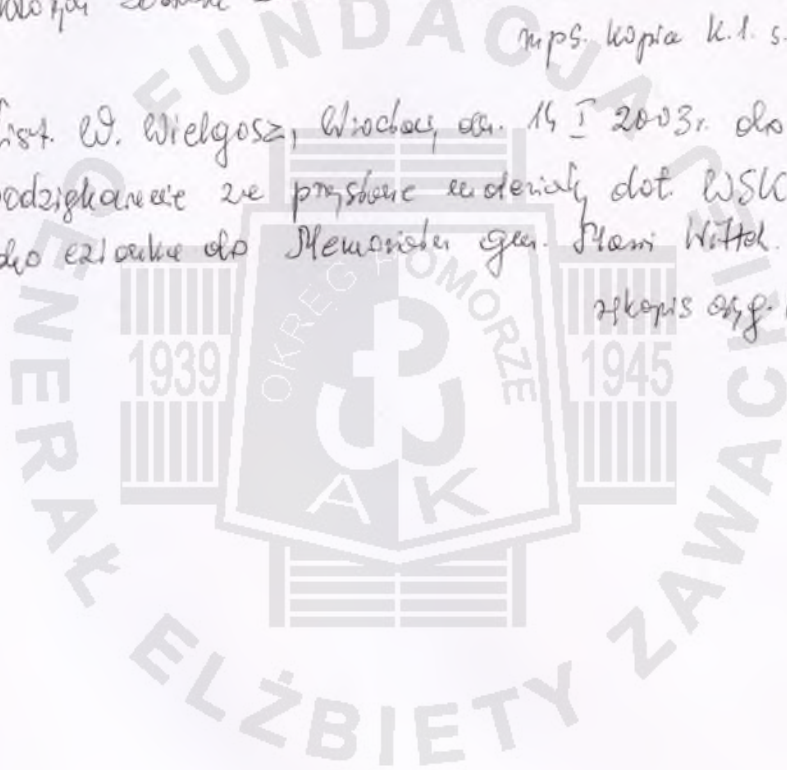 mps. kopia k. 1. s.
List. W. Wielgosz, Wrocław, dn. 14 I 2003r. do
podziękowanie za przysłane materiały dot. WSK
do Memoriału gen. Marii Wittek.
rękopis oryg.
FUNDACJA
GENERAŁ ELŻBIETY ZAWACKIEJ
OKRĘG POMORZE
1939
1945
AK